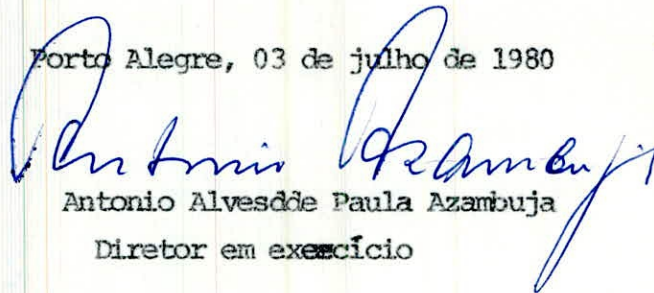 Porto Alegre, 03 de julho de 1980
Antonio Azambuja
Antonio Alvesdde Paula Azambuja
Diretor em exercício